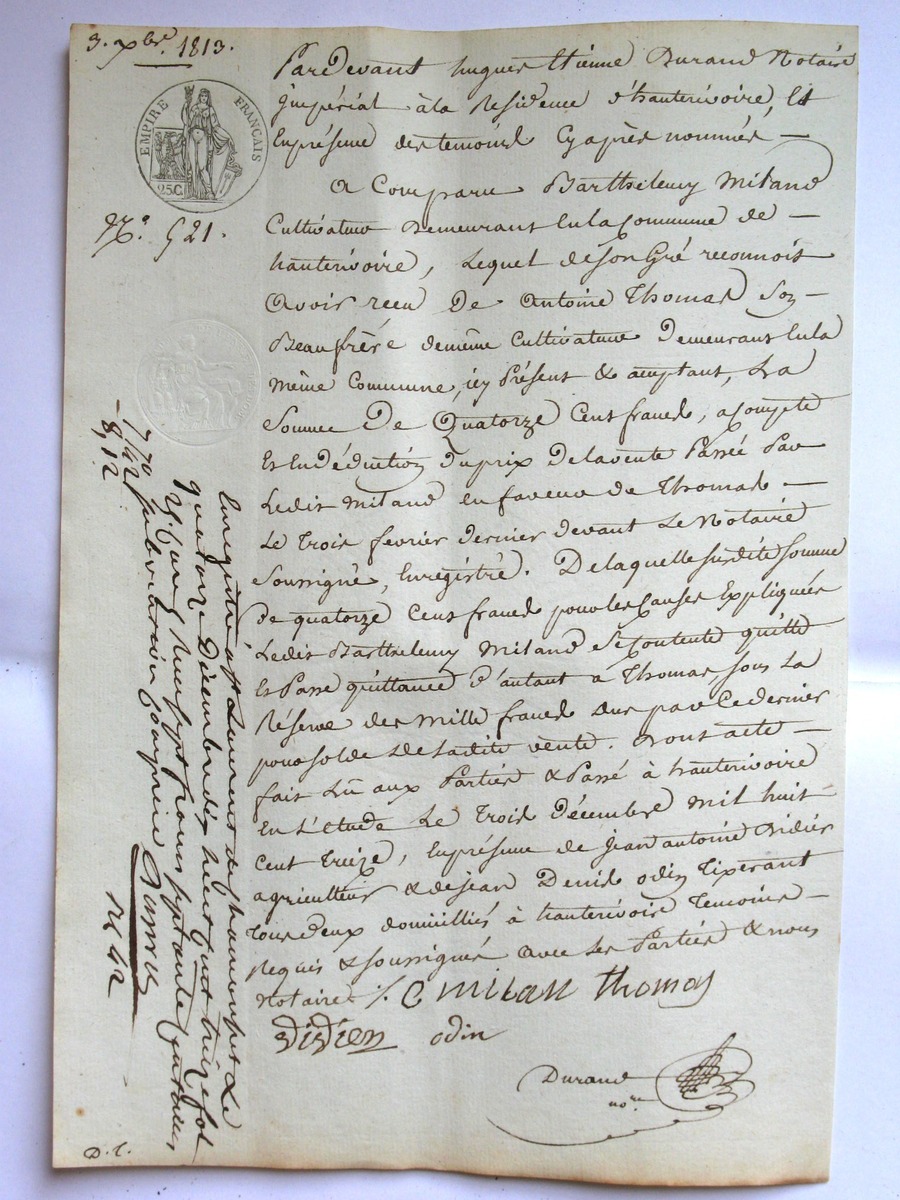 3. xbre. 1813.
EMPIRE FRANÇAIS
25C.
N°. 521.
Pardevant hugues Etienne Durand Notaire
jmpérial à la Residence d'hauterivoire, Et
Enprésence des temoins Cyaprès nommés —
a Comparu Barthelemy Miland
Cultivateur demeurant En la Commune de —
hauterivoire, Lequel de Son Gré reconnoit
avoir recu De antoine Thomas Son —
Beaufrère demême Cultivateur demeurant En la
même Commune, icy Présent & acceptant, La
Somme De Quatorze Cent francs, acompte
Et En Déduction Du prix De la vente Passée Par
Ledit Miland en faveur de Thomas —
Le trois fevrier dernier devant Le Notaire
Soussigné, Enregistré. De laquelle Susdite Somme
De quatorze Cent francs pour les Causes Expliquées
Ledit Barthelemy Miland Se Contente quitte
Et Passe quittance d'autant à Thomas sous La
Réserve des Mille francs dus par Ce dernier
pour solde De Ladite vente. Dont acte —
fait Lû aux Parties & Passé à hauterivoire
En L'étude Le Trois Décembre mil huit
Cent treize, En présence de jean antoine Didier
agriculteur & de jean Denis odin Tixerant
tous deux domiciliés à hauterivoire Temoins —
Requis & soussignés avec Les Parties & nous
Notaire ./.
C milan Thomas
Didier odin
Durand
nore
Enregistré à St Laurent de chamousset Le
quatorze Décembre dix huit Cent treize fol
Reçu Sept francs Soixante quatorze
7,70
8,12
D. T.